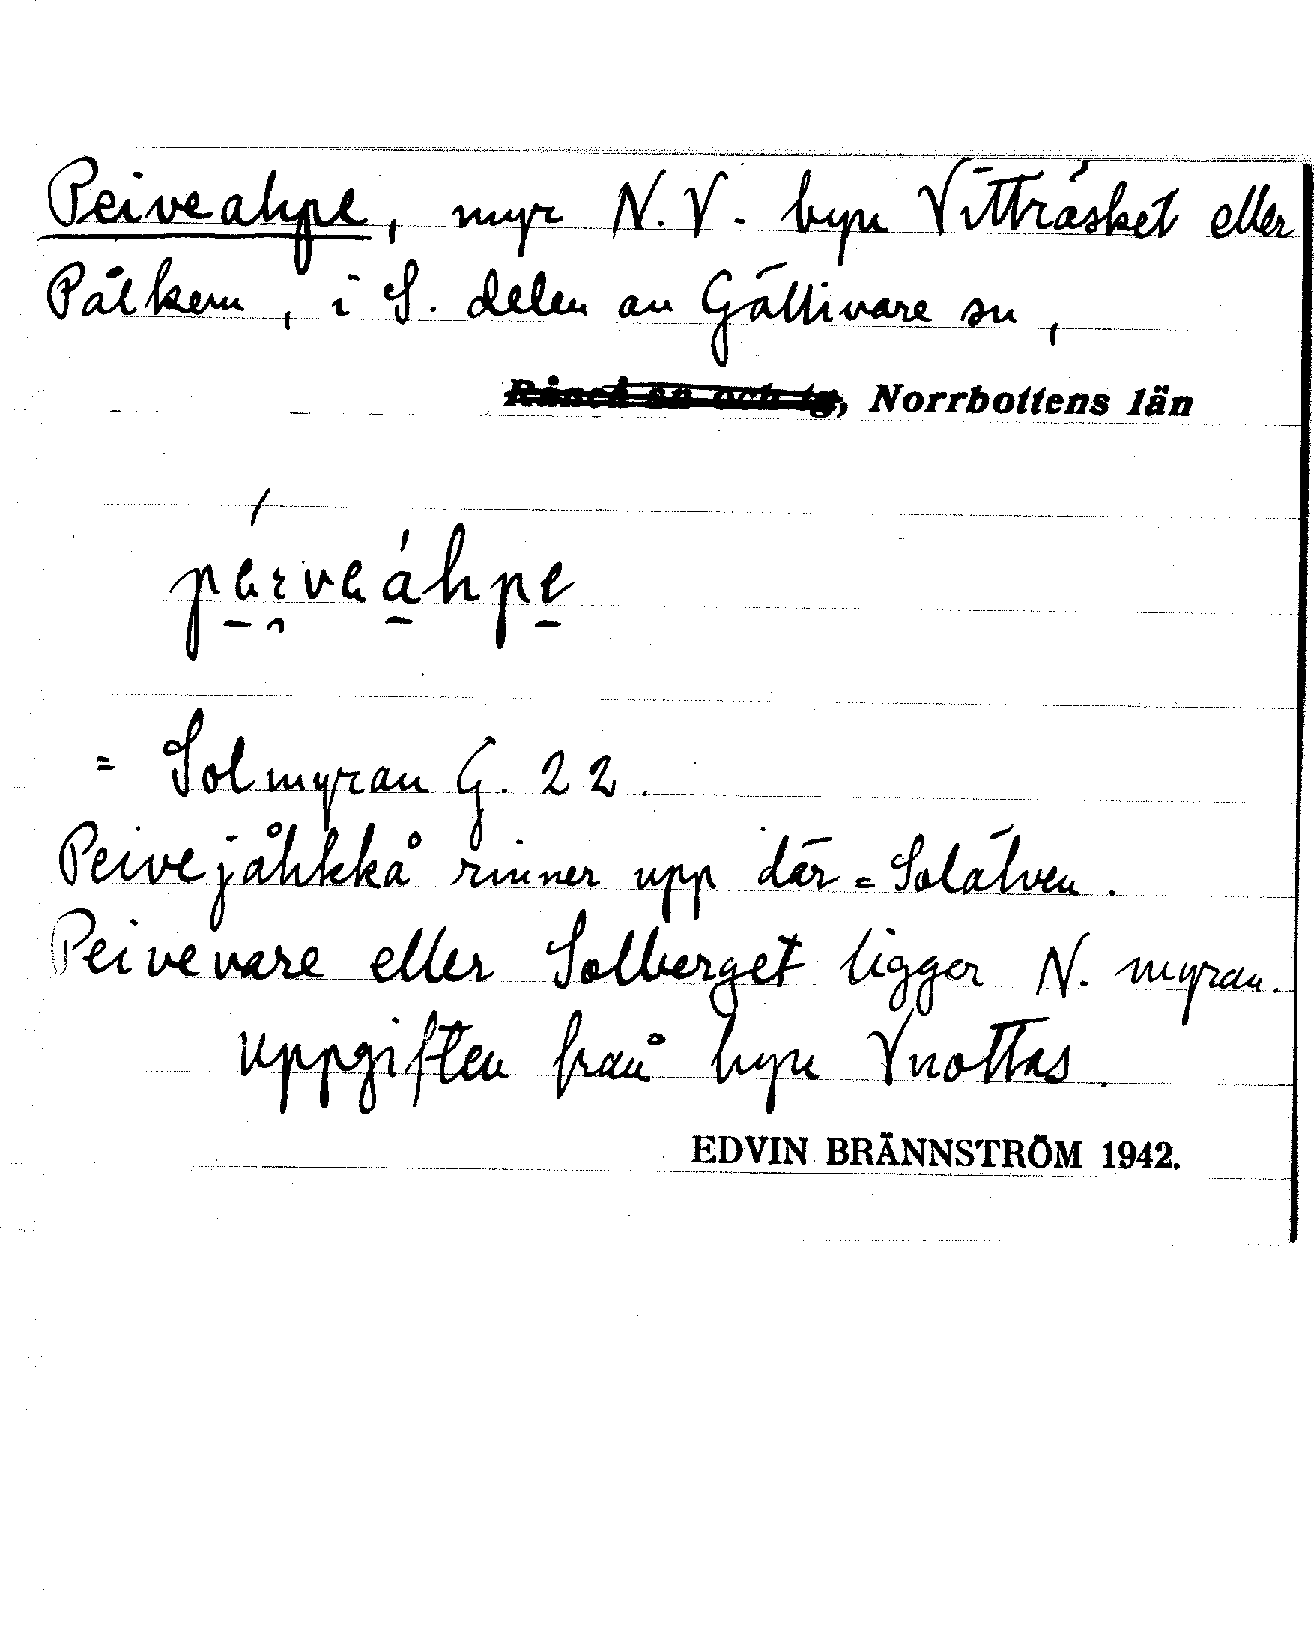 Peiveahpe, myr N.V. byn Vitträsket eller
Pålkem, i S. delen av Gällivare sn,
~~Råneå sn och tg~~, Norrbottens län
péi̯veáhpe
= Solmyran G. 22.
Peivejåhkkå rinner upp där = Solälven.
Peivevare eller Solberget ligger N. myran.
Uppgiften från byn Vuottas.
EDVIN BRÄNNSTRÖM 1942.